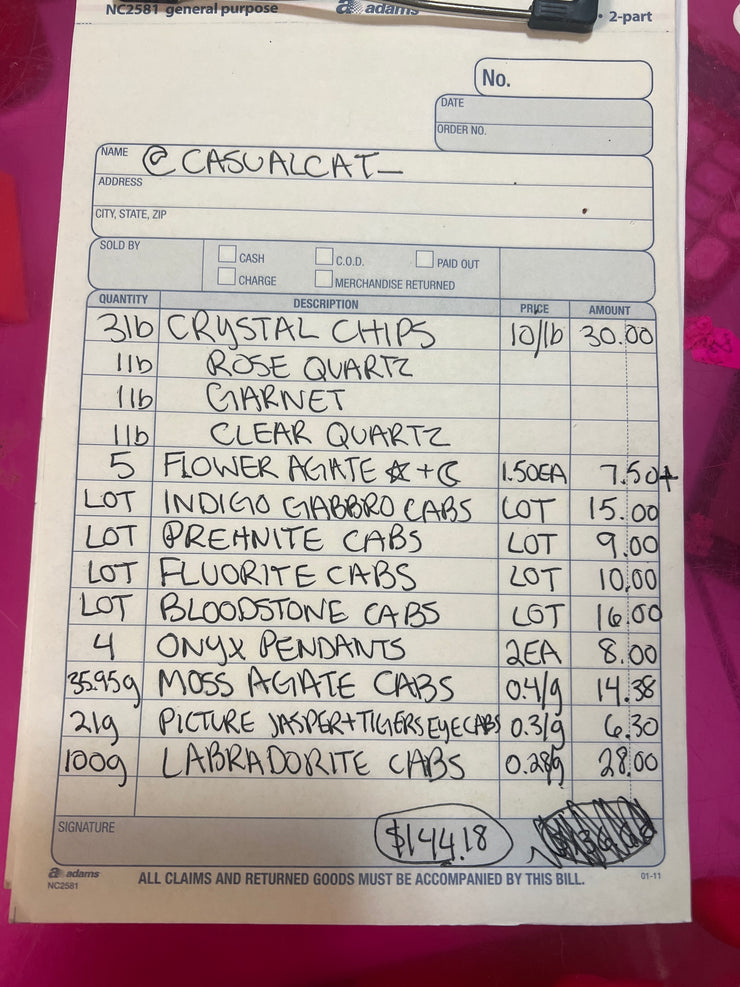 NC2581 general purpose adams • 2-part
No.
DATE
ORDER NO.
NAME @CASUALCAT_
ADDRESS
CITY, STATE, ZIP
SOLD BY CASH C.O.D. PAID OUT
CHARGE MERCHANDISE RETURNED
QUANTITY DESCRIPTION PRICE AMOUNT
3lb CRYSTAL CHIPS 10/lb 30.00
1lb ROSE QUARTZ
1lb GARNET
1lb CLEAR QUARTZ
5 FLOWER AGATE ☆+☾ 1.50EA 7.50+
LOT INDIGO GABBRO CABS LOT 15.00
LOT PREHNITE CABS LOT 9.00
LOT FLUORITE CABS LOT 10.00
LOT BLOODSTONE CABS LOT 16.00
4 ONYX PENDANTS 2EA 8.00
35.95g MOSS AGATE CABS 0.4/g 14.38
21g PICTURE JASPER+TIGERS EYE CABS 0.3/g 6.30
100g LABRADORITE CABS 0.28/g 28.00
SIGNATURE $144.18
adams
NC2581 ALL CLAIMS AND RETURNED GOODS MUST BE ACCOMPANIED BY THIS BILL. 01-11